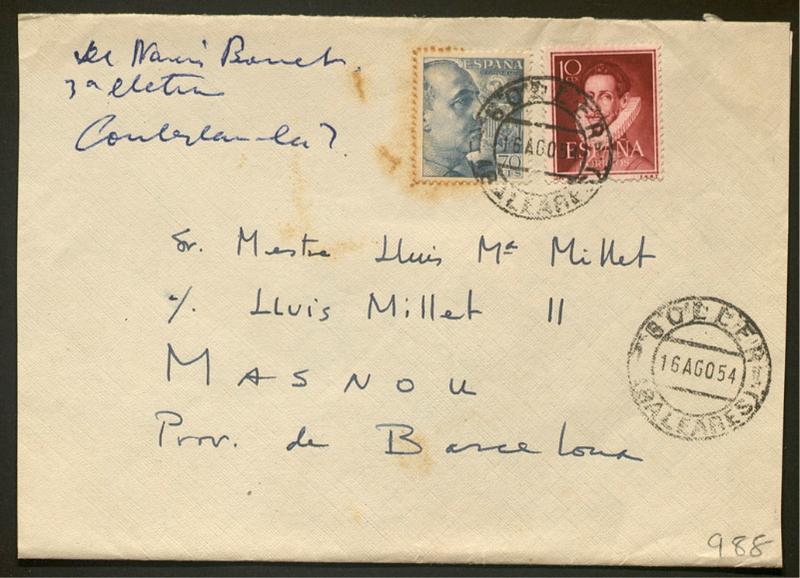 de Narcís Bonet
3ª lletra
Contestada?
ESPAÑA
CORREOS
70 CTS
10 CTS
ESPAÑA
CORREOS
SOLLER
16 AGO 54
(BALEARES)
Sr. Mestre Lluis Mª Millet
%. Lluis Millet 11
MASNOU
Prov. de Barcelona
SOLLER
16 AGO 54
(BALEARES)
988